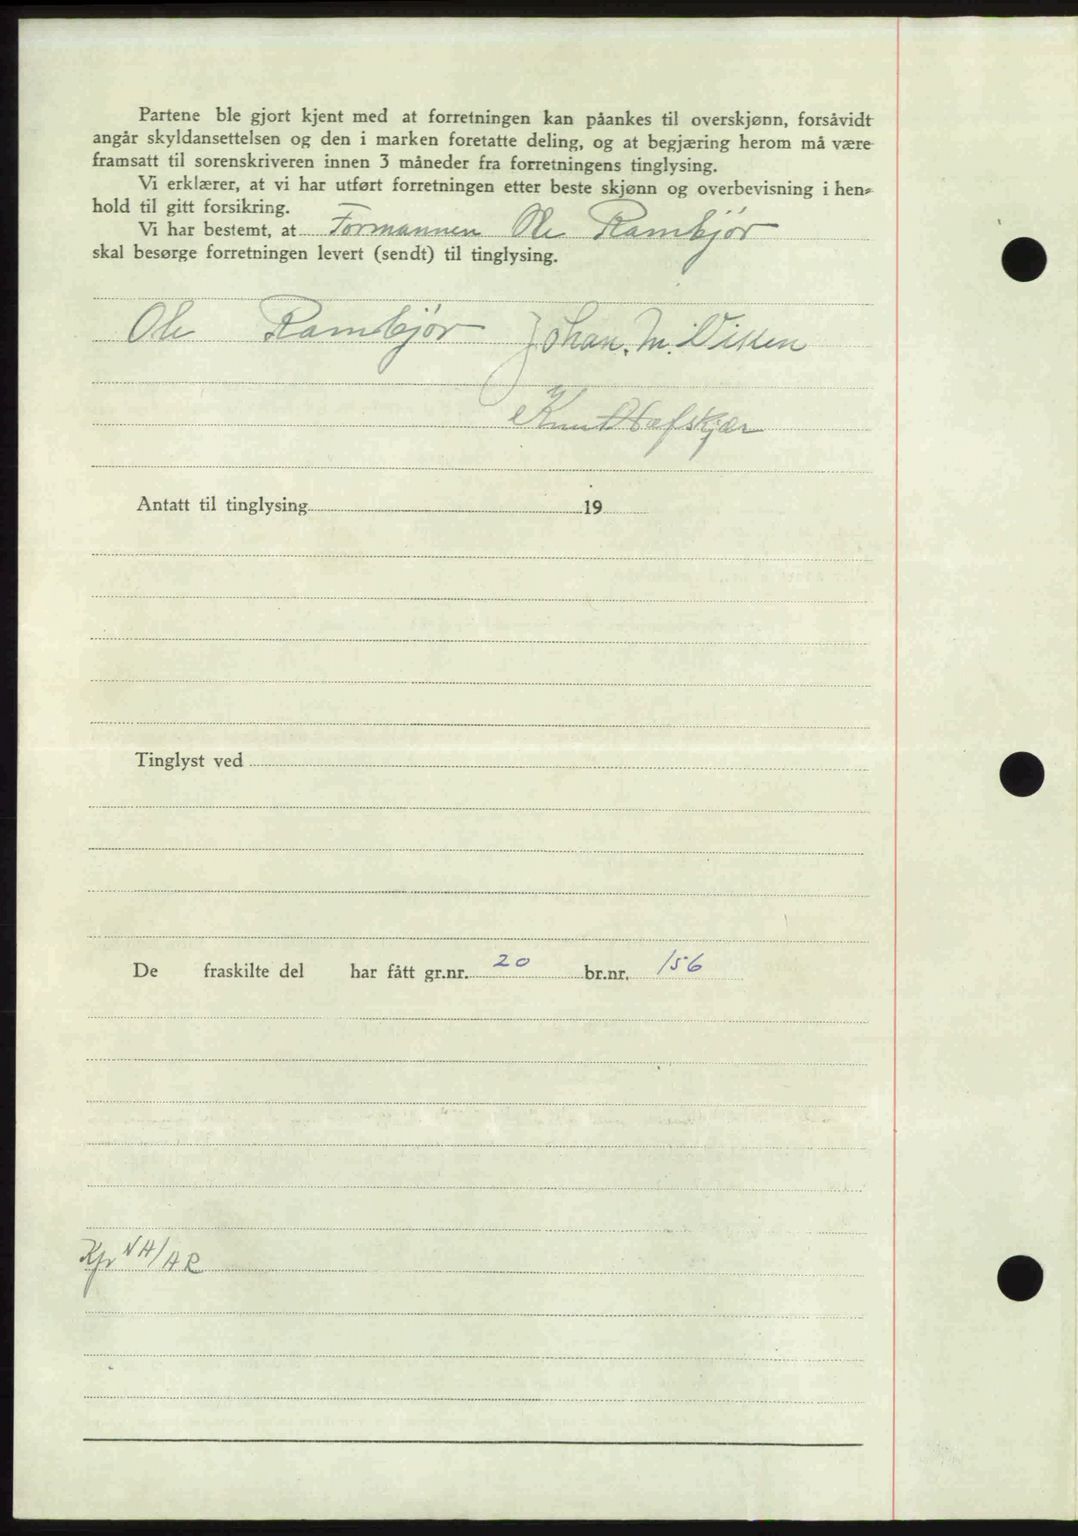 Partene ble gjort kjent med at forretningen kan påankes til overskjønn, forsåvidt
angår skyldansettelsen og den i marken foretatte deling, og at begjæring herom må være
framsatt til sorenskriveren innen 3 måneder fra forretningens tinglysing.
Vi erklærer, at vi har utført forretningen etter beste skjønn og overbevisning i hen-
hold til gitt forsikring.
Vi har bestemt, at Formannen Ole Rambjør
skal besørge forretningen levert (sendt) til tinglysing.
Ole Rambjør Johan. M. Viken
Knut Hafskjær
Antatt til tinglysing 19
Tinglyst ved
De fraskilte del har fått gr.nr. 20 br.nr. 156
Kpr NH/AR